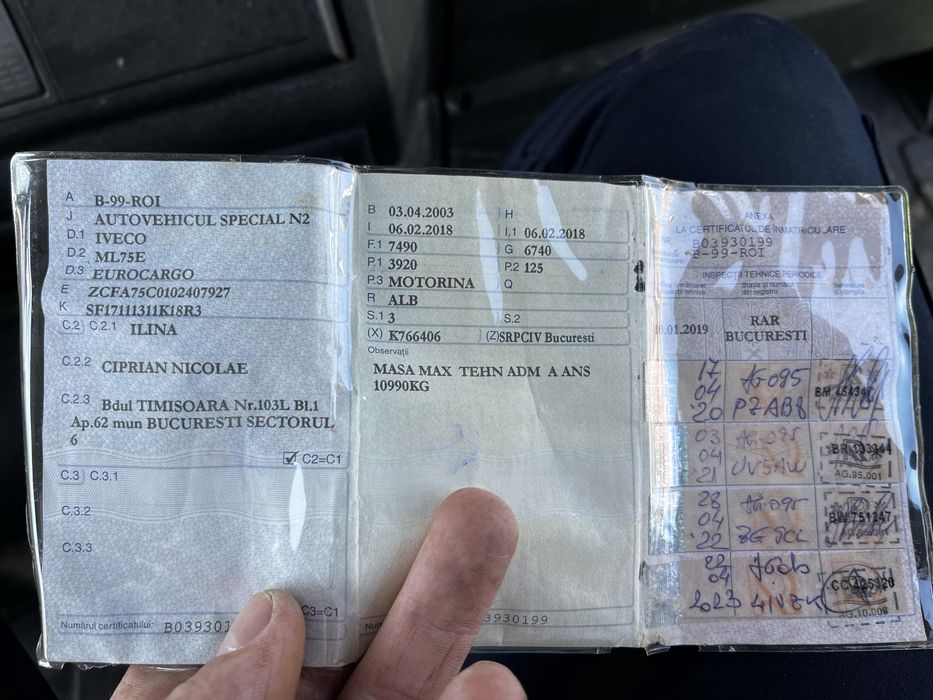 A B-99-ROI
J AUTOVEHICUL SPECIAL N2
D.1 IVECO
D.2 ML75E
D.3 EUROCARGO
E ZCFA75C0102407927
K SF17111311K18R3
C.2 C.2.1 ILINA
C.2.2 CIPRIAN NICOLAE
C.2.3 Bdul TIMISOARA Nr.103L Bl.1
Ap.62 mun BUCURESTI SECTORUL
6
C2=C1
C.3 C.3.1
C.3.2
C.3.3
C3=C1
Numărul certificatului: B03930
B 03.04.2003 H
I 06.02.2018 I.1 06.02.2018
F.1 7490 G 6740
P.1 3920 P.2 125
P.3 MOTORINA Q
R ALB
S.1 3 S.2
(X) K766406 (Z)SRPCIV Bucuresti
Observații
MASA MAX TEHN ADM A ANS
10990KG
3930199
ANEXA
LA CERTIFICATUL DE ÎNMATRICULARE
NR. B03930199
B-99-ROI
INSPECȚII TEHNICE PERIODICE
Stația și numărul
din registru
10.01.2019 RAR
BUCURESTI
17
04
'20
AG095
03
04
21
AG.95.001
23
04
'22
AG095
BW 751247
22
04
2023
AG.10.008